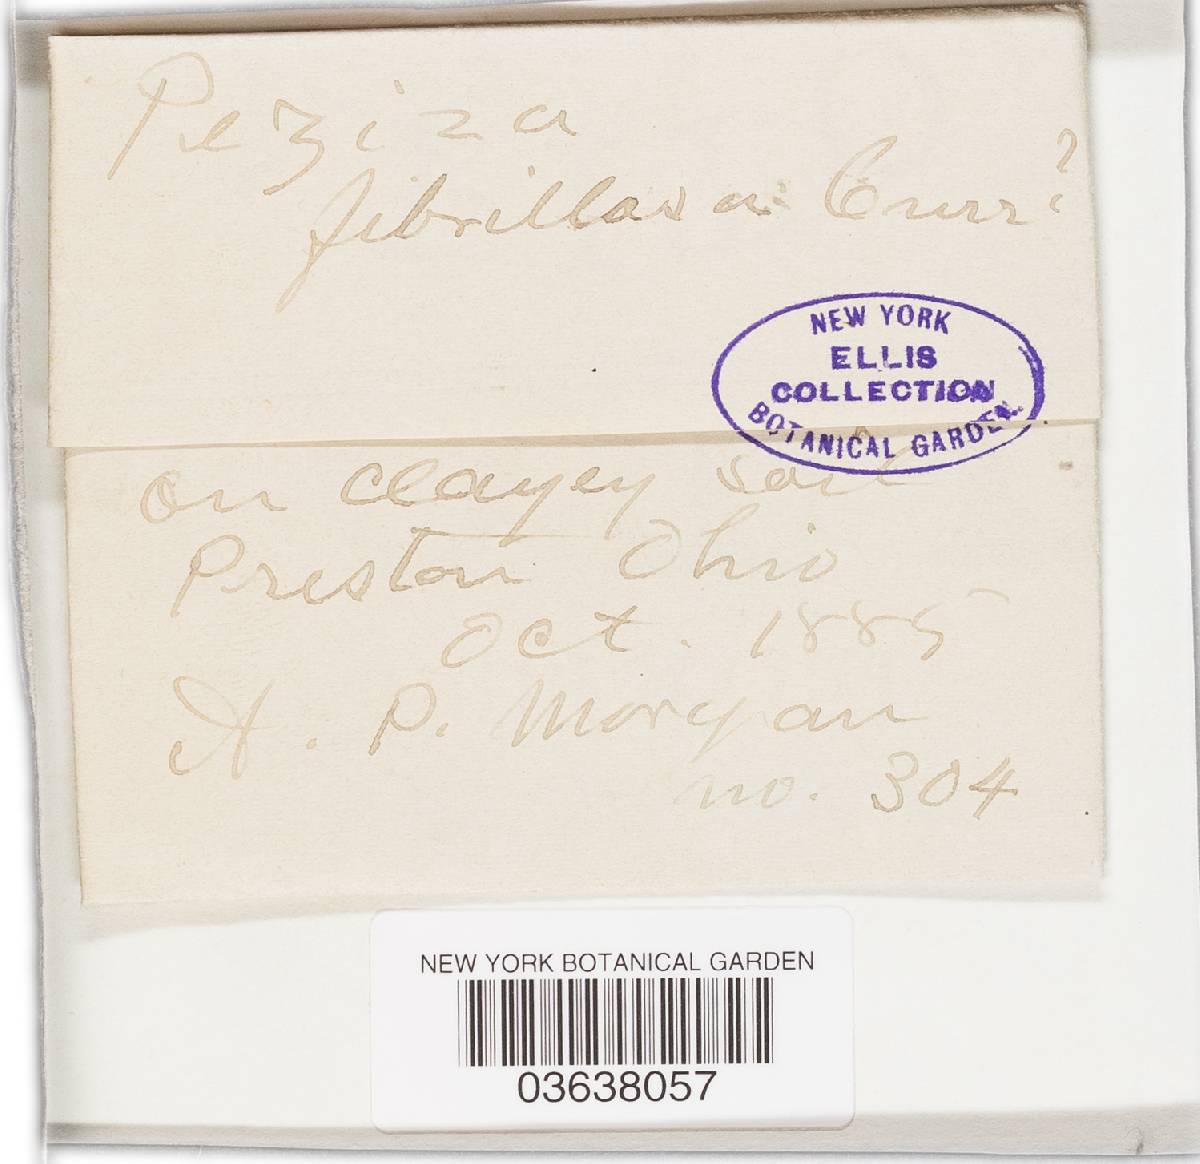 Peziza
fibrillosa Curr?
NEW YORK
ELLIS
COLLECTION
BOTANICAL GARDEN.
on clayey soil
Preston Ohio
Oct. 1885
A. P. Morgan
no. 304
NEW YORK BOTANICAL GARDEN
03638057